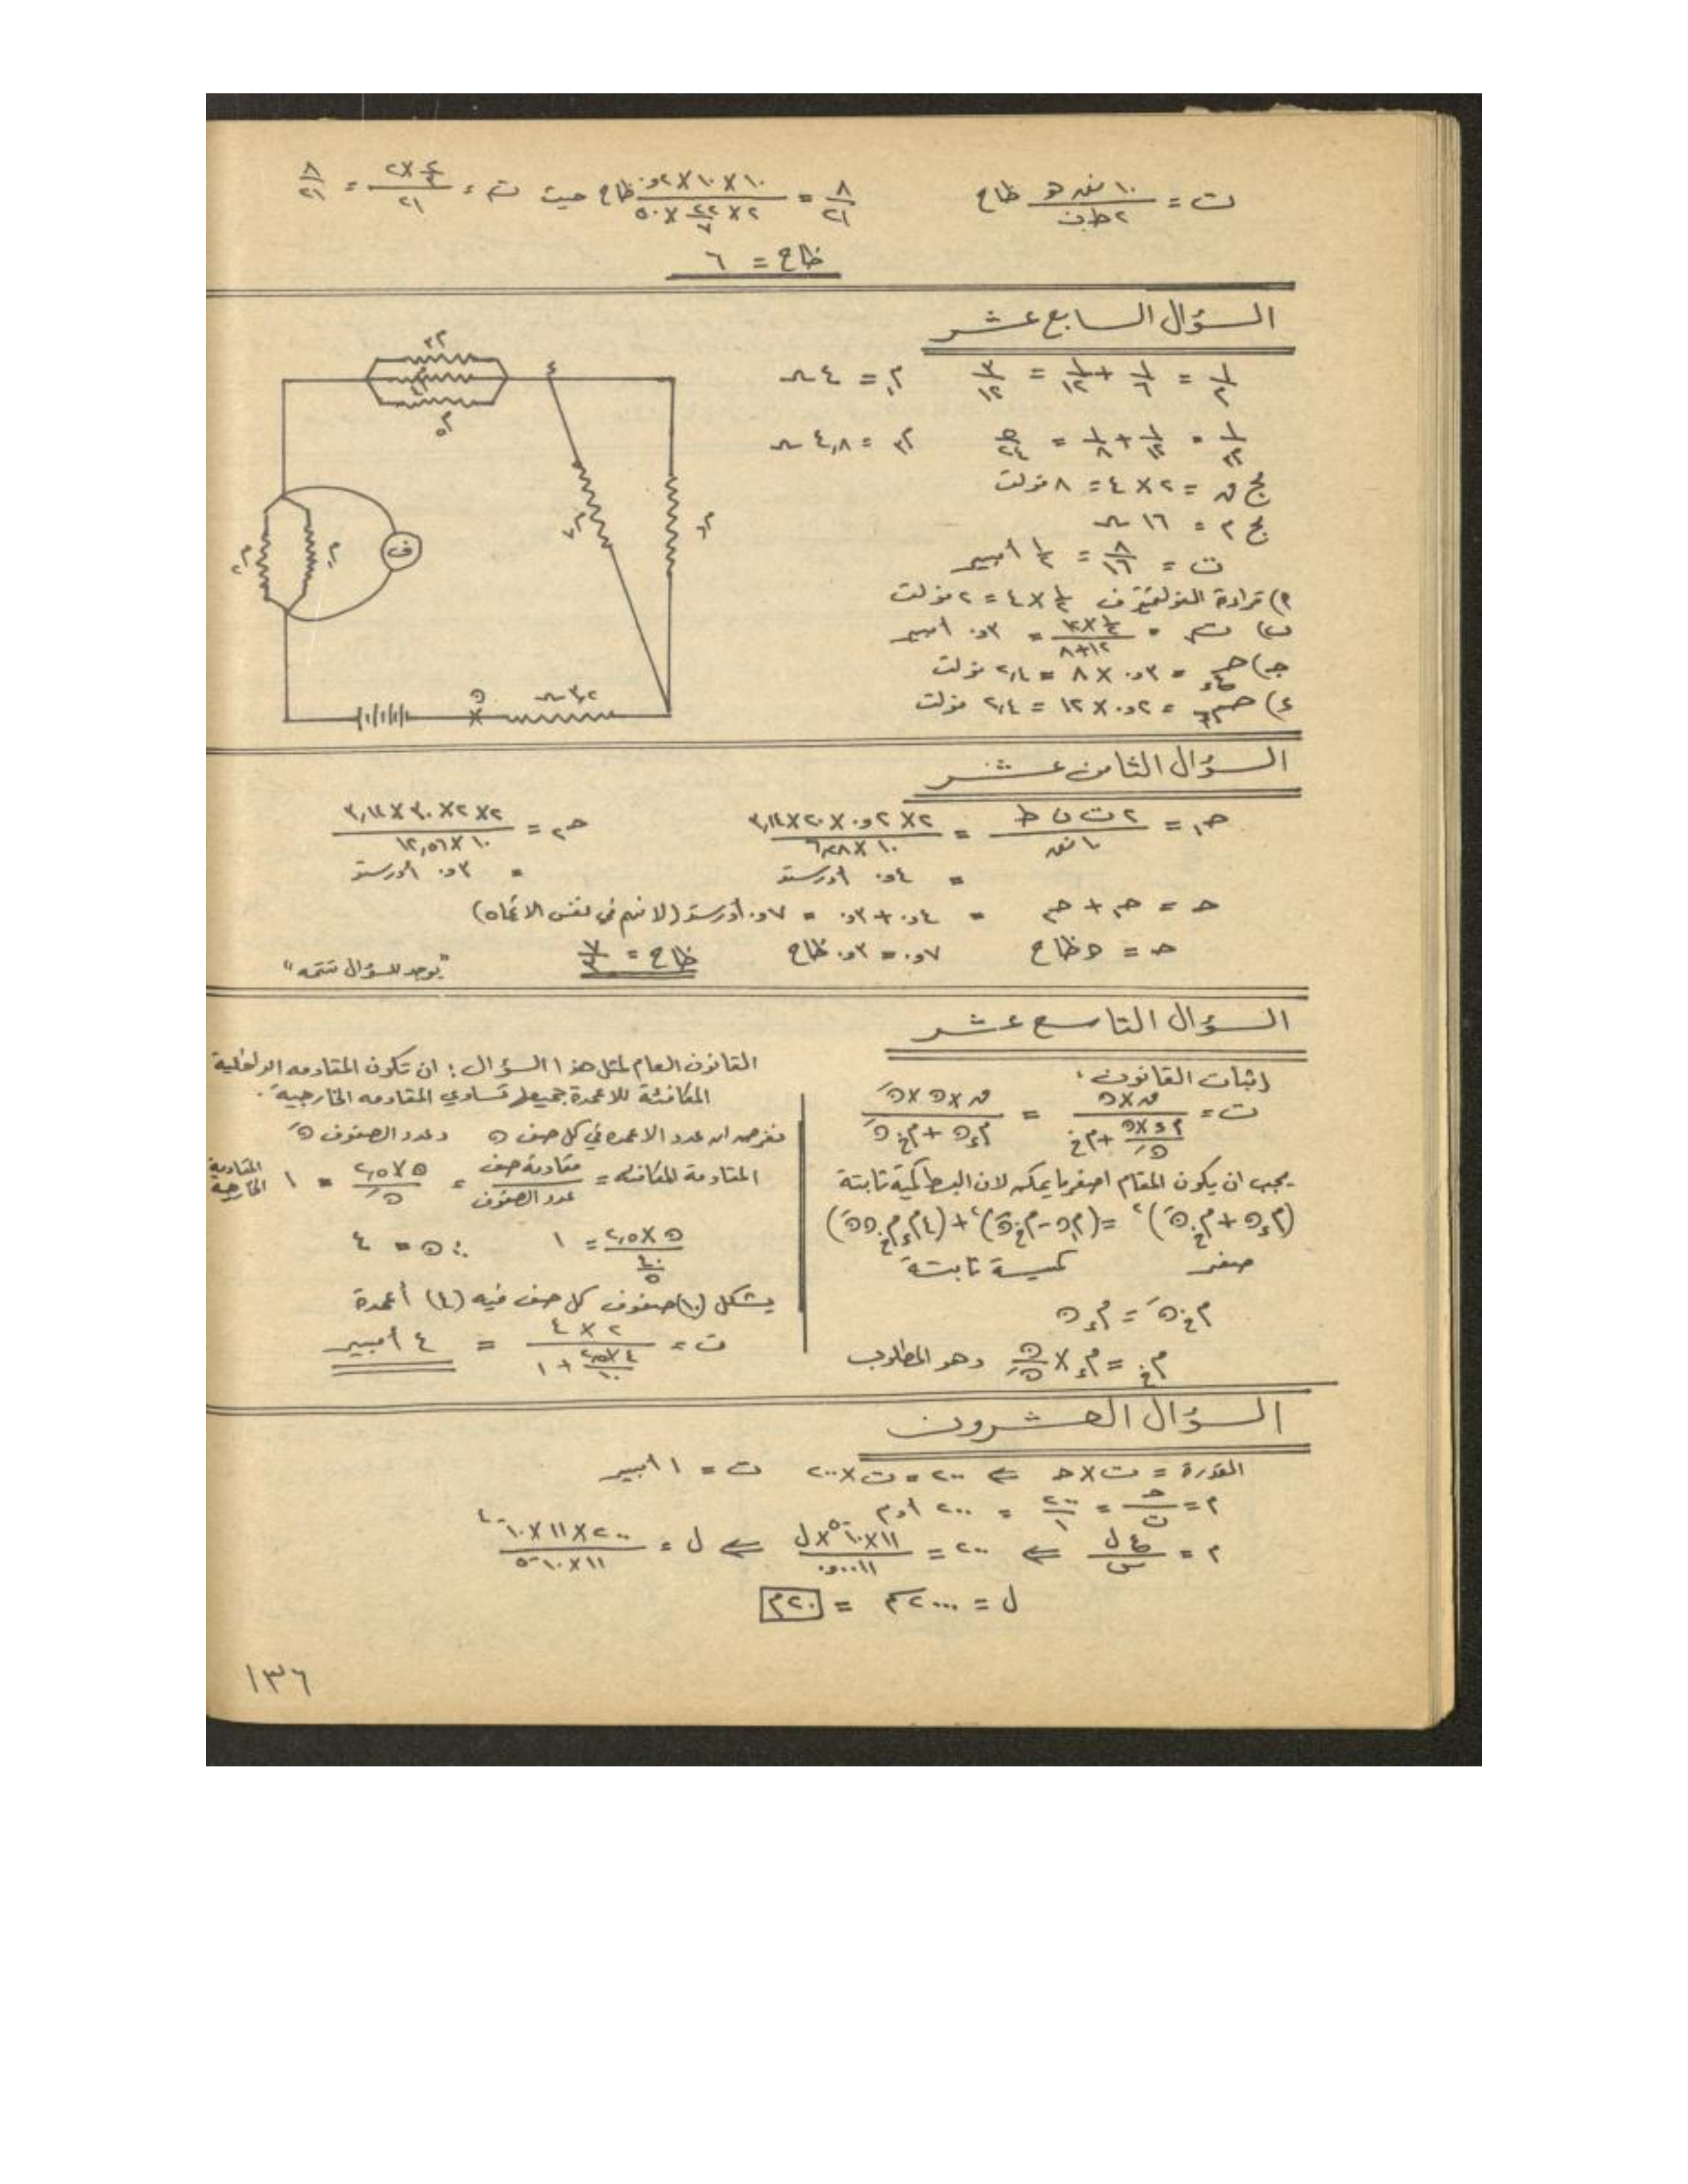 ت = ١٠ نق هـ / ٢ ط ن ظاح    ٨/٢١ = ١٠ × ١٠ × ٠٫٢ / ٢ × ٢٢/٧ × ٥٠ ظاح حيث ت = ٤/٢ × ٢ / ٢١ = ٨/٢١
ظاح = ٦
السؤال السابع عشر
١/م = ١/٦ + ١/١٢ = ٣/١٢    م١ = ٤ ہ
١/م٢ = ١/١٢ + ١/٨ = ٥/٢٤    م٢ = ٤٫٨ ہ
مج ق = ٢ × ٤ = ٨ فولت
مج م = ١٦ ہ
ت = ٨/١٦ = ١/٢ أمبير
٢م
٤
٥م
ف
٣٫٢ ہ
ن
٢) قراءة الفولتميتر ف ١/٢ × ٤ = ٢ فولت
ب) ت = ١/٢ × ١٢ / ٨+١٢ = ٠٫٣ أمبير
جـ) حـ = ٠٫٣ × ٨ = ٢٫٤ فولت
ء) حـ = ٠٫٢ × ١٢ = ٢٫٤ فولت
السؤال الثامن عشر
حـ١ = ٢ ت ن ط / ١٠ نق = ٢ × ٠٫٢ × ٢٠ × ٣٫١٤ / ١٠ × ٦٫٢٨    حـ٢ = ٢ × ٢ × ٣٠ × ٣٫١٤ / ١٠ × ١٢٫٥٦
= ٠٫٤ أورستد    = ٠٫٣ أورستد
حـ = حـ١ + حـ٢ = ٠٫٤ + ٠٫٣ = ٠٫٧ أورستد (لانهم في نفس الاتجاه)
حـ = هـ ظاح    ٠٫٧ = ٠٫٣ ظاح    ظاح = ٧/٣    "يوجد للسؤال تتمه"
السؤال التاسع عشر
اثبات القانون :
ت = ق × ن / (م ء × ن / نَ + م خ) = ق × ن × نَ / م ء ن + م خ نَ
يجب ان يكون المقام اصغر ما يمكن لان البسط كمية ثابتة
(م ء ن + م خ نَ)٢ = (م ء ن - م خ نَ)٢ + (٤ م ء م خ ن نَ)
صفر    كمية ثابتة
م خ نَ = م ء ن
م خ = م ء × ن/نَ وهو المطلوب
القانون العام لمثل هذا السؤال : ان تكون المقاومه الداخلية
المكافئة للاعمدة جميعها تساوي المقاومه الخارجية .
نفرض ان عدد الاعمده في كل صف ن وعدد الصفوف نَ
المقاومة المكافئه = مقاومة صف / عدد الصفوف = ن × ٢٫٥ / نَ = ١ المقاومة الخارجية
ن × ٢٫٥ / ٤٠/ن = ١    ∴ ن = ٤
يشكل (١٠) صفوف كل صف فيه (٤) أعمدة
ت = ٢ × ٤ / (٤ × ٢٫٥ / ١٠ + ١) = ٤ أمبير
السؤال العشرون
القدرة = ت × حـ ⇐ ٢٠٠ = ت × ٢٠٠    ت = ١ أمبير
م = حـ/ت = ٢٠٠/١ = ٢٠٠ اوم
م = ع ل / س ⇐ ٢٠٠ = ١١ × ١٠-٥ × ل / ٠٫٠٠١١ ⇐ ل = ٢٠٠ × ١١ × ١٠-٤ / ١١ × ١٠-٥
ل = ٢٠٠٠ سم = ٢٠ م
١٣٦